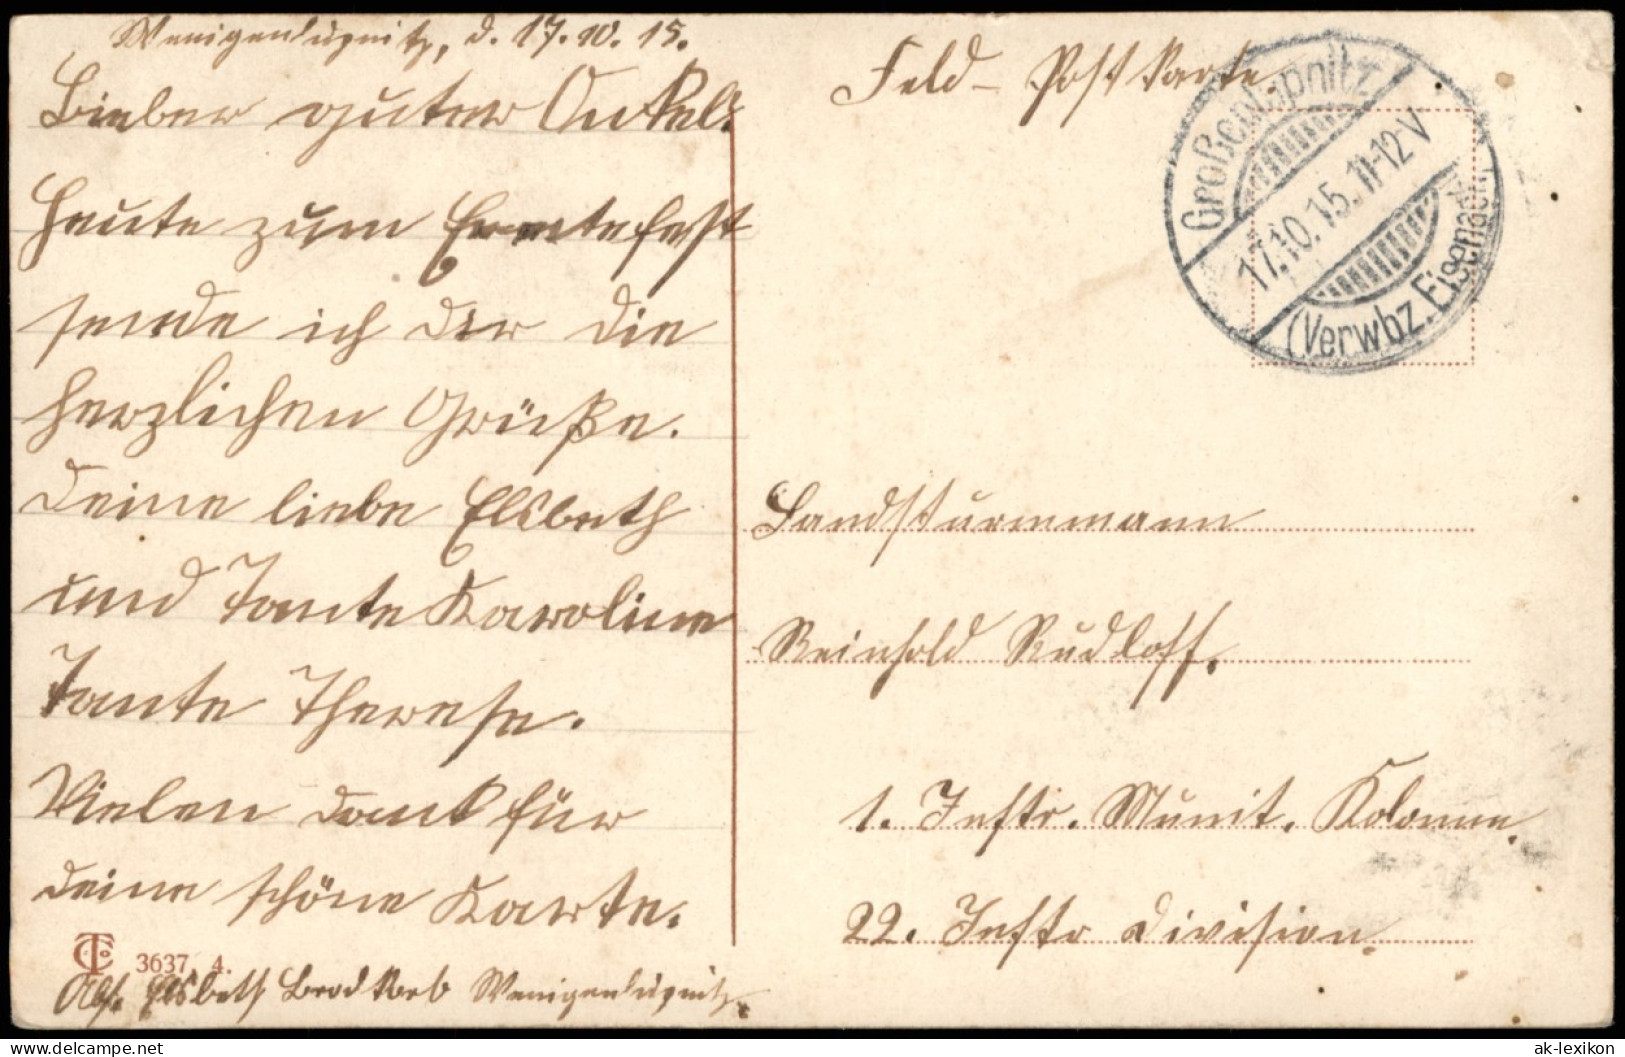 Wenigenlupnitz, d. 17.10.15.
Lieber guter Onkel!
Heute zum Erntefest
sende ich dir die
herzlichen Grüße.
Deine liebe Elsbeth
und Tante Karoline
Tante Therese.
Vielen Dank für
deine schöne Karte.
3637 4.
Abs. Elsbeth Brodkorb Wenigenlupnitz.
Feld-Postkarte.
Großenlupnitz
17.10.15.11-12V
(Verwbz. Eisenach)
Landsturmmann
Reinhold Rudloff.
1. Inftr. Munit. Kolonne.
22. Inftr Division.
delcampe.net
ak-lexikon